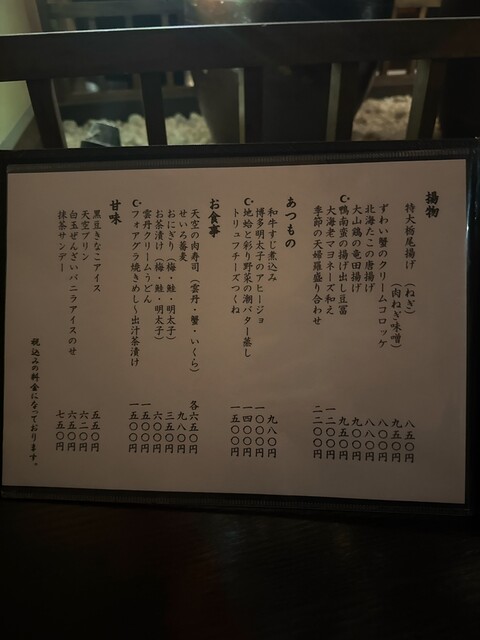 揚物
特大栃尾揚げ (ねぎ) 八五〇円
(肉ねぎ味噌) 九五〇円
ずわい蟹のクリームコロッケ 八〇〇円
北海たこの唐揚げ 八八〇円
大山鶏の竜田揚げ 九〇〇円
鴨南蛮の揚げ出し豆冨 九五〇円
大海老マヨネーズ和え 一二〇〇円
季節の天婦羅盛り合わせ 二二〇〇円
あつもの
和牛すじ煮込み 九八〇円
博多明太子のアヒージョ 一〇〇〇円
地蛤と彩り野菜の潮バター蒸し 一四〇〇円
トリュフチーズつくね 一五〇〇円
お食事
天空の肉寿司 (雲丹・蟹・いくら) 各六五〇円
せいろ蕎麦 九八〇円
おにぎり (梅・鮭・明太子) 三五〇円
お茶漬け (梅・鮭・明太子) 六〇〇円
雲丹クリームうどん 一五〇〇円
フォアグラ焼きめし〜出汁茶漬け 一五〇〇円
甘味
黒豆きなこアイス 五五〇円
天空プリン 六二〇円
白玉ぜんざいバニラアイスのせ 六五〇円
抹茶サンデー 七五〇円
税込みの料金になっております。